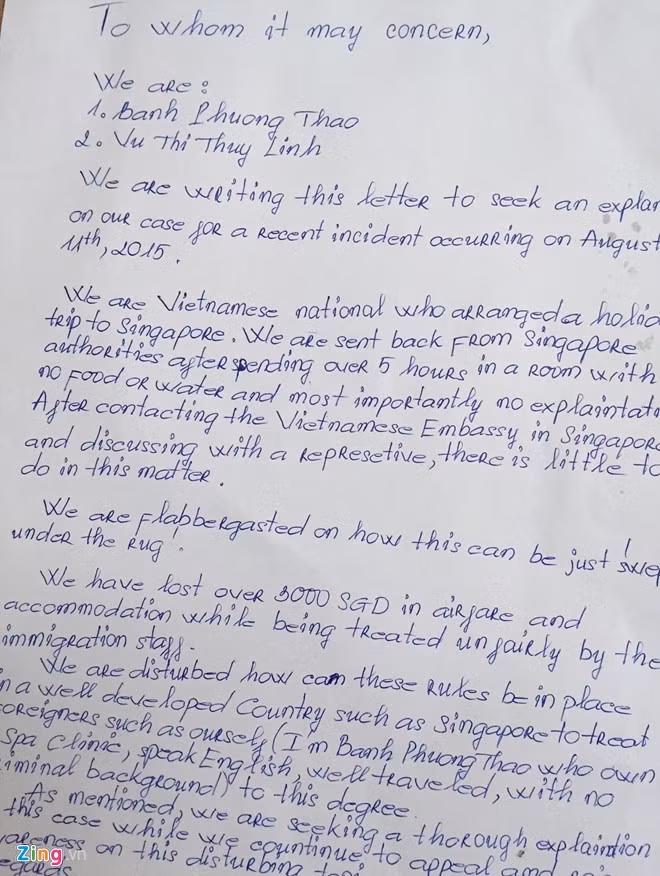 To whom it may concern,
We are:
1. Banh Phuong Thao
2. Vu Thi Thuy Linh
We are writing this letter to seek an explan
on our case for a recent incident occurring on August
11th, 2015.
We are Vietnamese national who arranged a holid
trip to Singapore. We are sent back from Singapore
authorities after spending over 5 hours in a room with
no food or water and most importantly no explaintati
After contacting the Vietnamese Embassy in Singapore
and discussing with a represetive, there is little to
do in this matter.
We are flabbergasted on how this can be just 'swep
under the rug'.
We have lost over 3000 SGD in airfare and
accommodation while being treated unfairly by the
immigration staff.
We are disturbed how can these rules be in place
in a well developed Country such as Singapore to treat
foreigners such as ourself (I'm Banh Phuong Thao who own
Spa Clinic, speak English, well traveled, with no
iminal background) to this degree.
As mentioned, we are seeking a thorough explaintion
this case while we countinue to appeal and
wareness on this disturbing
egards
Zing.vn